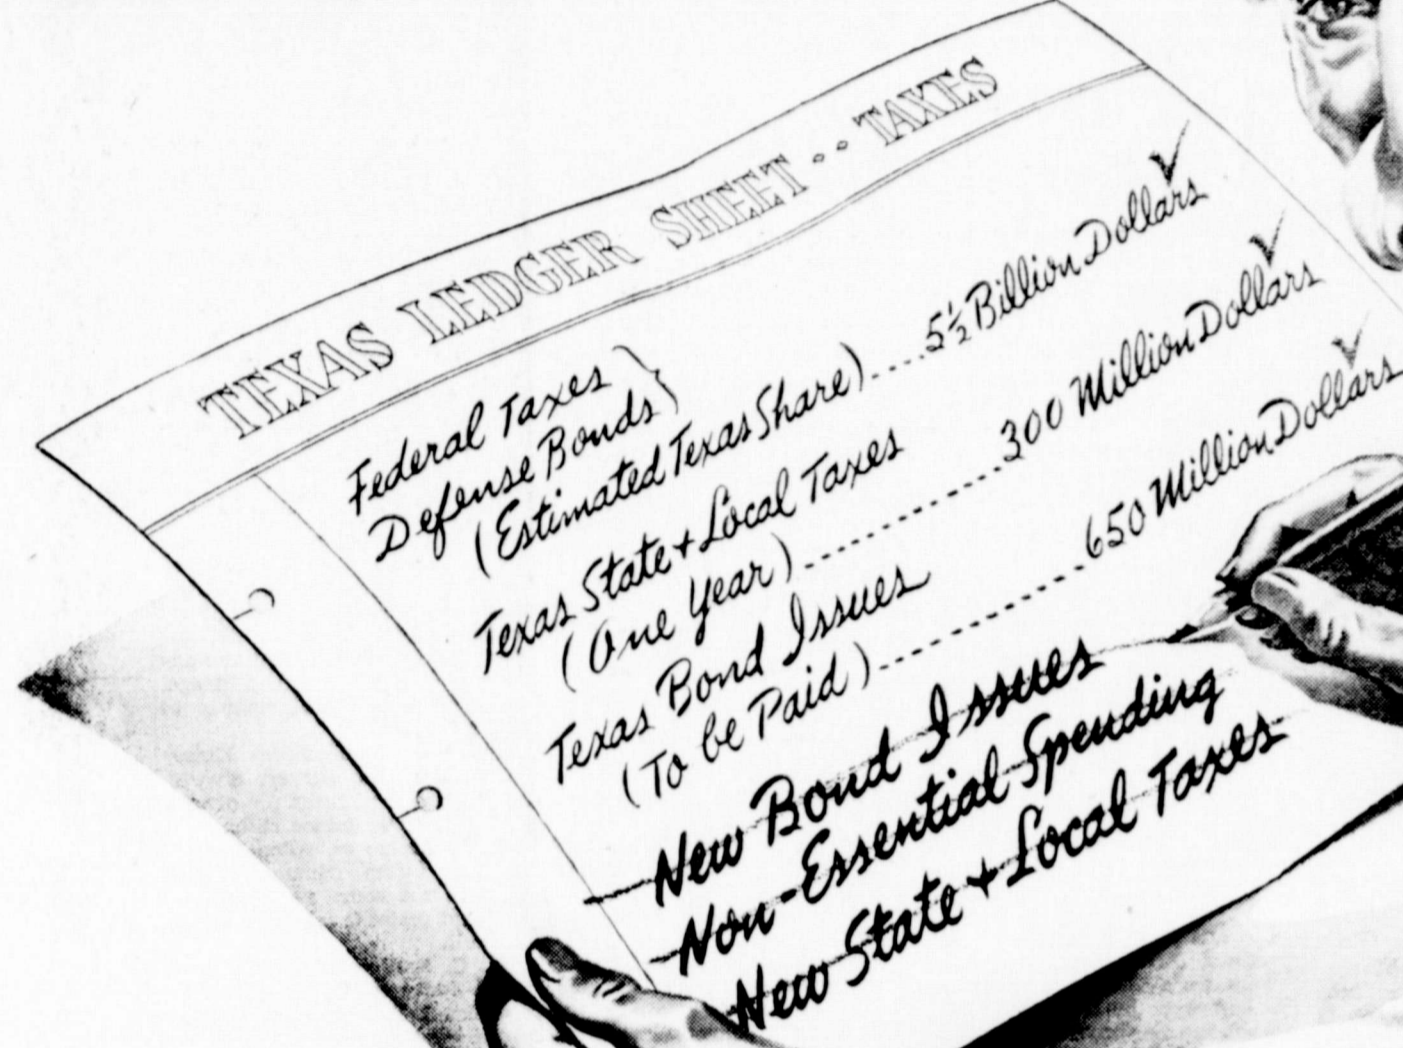 TEXAS LEDGER SHEET . . TAXES
Federal Taxes }
Defense Bonds
(Estimated Texas Share)....5½ Billion Dollars ✓
Texas State + Local Taxes
(One Year)..............300 Million Dollars ✓
Texas Bond Issues
(To be Paid)..............650 Million Dollars ✓
New Bond Issues
Non-Essential Spending
New State + Local Taxes